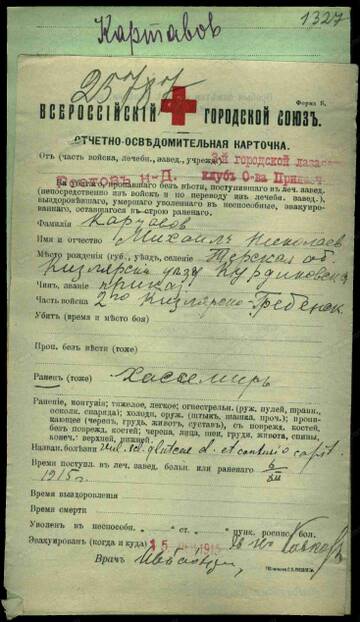 1327
Картавов
25787
Форма Б.
ВСЕРОССІЙСКІЙ ГОРОДСКОЙ СОЮЗЪ.
ОТЧЕТНО-ОСВѢДОМИТЕЛЬНАЯ КАРТОЧКА.
Отъ (часть войска, лечебн. завед., учрежд.) 3-й городской лазар.
Ростовъ н-Д. клубъ О-ва Прикащ.
На убитаго, пропавшаго безъ вѣсти, поступившаго въ леч. завед.
(непосредственно изъ войскъ и по переводу изъ лечебн. завед.),
выздоровѣвшаго, умершаго уволеннаго въ неспособные, эвакуиро-
ваннаго, оставшагося въ строю раненаго.
Фамилія Картавовъ
Имя и отчество Михаилъ Николаев
Мѣсто рожденія (губ., уѣздъ, селеніе) Терская об.
Кизлярск. уѣзд
Чинъ, званіе приказ.
Часть войска 2го Кизлярско-Гребенск.
Убитъ (время и мѣсто боя)
Проп. безъ вѣсти (тоже)
Раненъ (тоже)
Раненіе, контузія; тяжелое, легкое; огнестрѣльн. (руж. пулей, шрапн.,
осколк. снаряда); холодн. оруж. (штыкъ, шашка, проч.); прони-
кающее (черепъ, грудь, животъ, суставъ), съ поврежд. костей,
безъ поврежд. костей; черепа, лица, шеи, груди, живота, спины,
конеч.: верхней, нижней.
Назван. болѣзни vul. scl. gluteae d. et contusio capit.
Время поступл. въ леч. завед. больн. или раненаго 6/XII
1915 г.
Время выздоровленія
Время смерти
Уволенъ въ неспособн. „ ст. „ пунк. роспис. бол.
Эвакуированъ (когда и куда) 15 1915
Врачъ